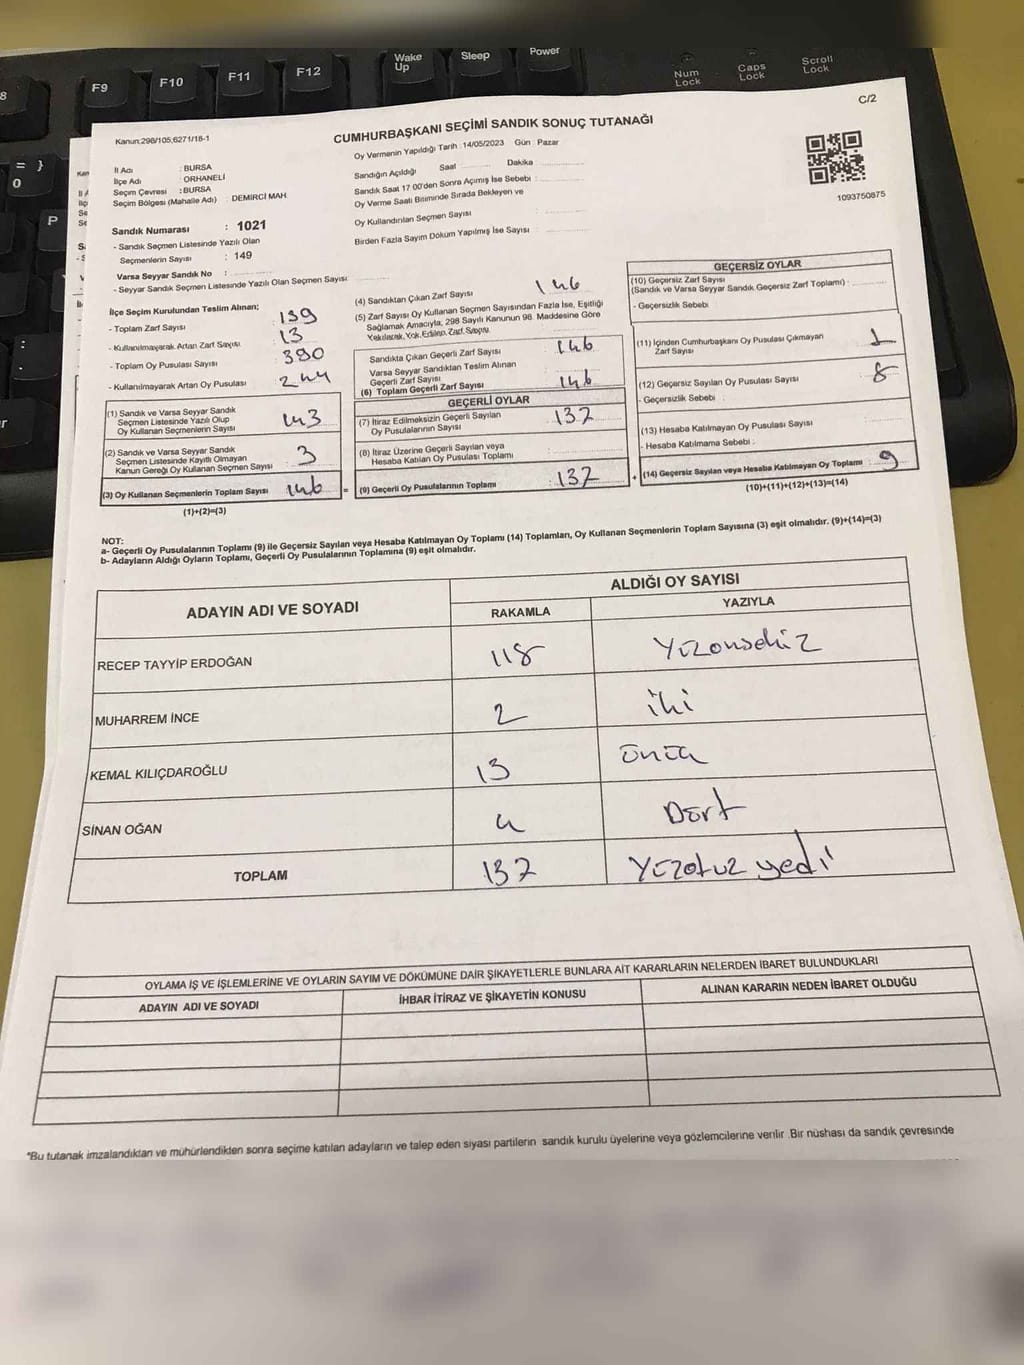 Wake Up
Sleep
Power
F9
F10
F11
F12
Num Lock
Caps Lock
Scroll Lock
C/2
Kanun:298/105;6271/18-1
CUMHURBAŞKANI SEÇİMİ SANDIK SONUÇ TUTANAĞI
İl Adı : BURSA
İlçe Adı : ORHANELİ
Seçim Çevresi : BURSA
Seçim Bölgesi (Mahalle Adı) : DEMİRCİ MAH.
Oy Vermenin Yapıldığı Tarih : 14/05/2023 Gün : Pazar
Sandığın Açıldığı Saat Dakika
Sandık Saat 17.00'den Sonra Açımış İse Sebebi :
Oy Verme Saati Bitiminde Sırada Bekleyen ve
Oy Kullandırılan Seçmen Sayısı :
Birden Fazla Sayım Döküm Yapılmış İse Sayısı :
1093750875
Sandık Numarası : 1021
- Sandık Seçmen Listesinde Yazılı Olan
Seçmenlerin Sayısı : 149
Varsa Seyyar Sandık No :
- Seyyar Sandık Seçmen Listesinde Yazılı Olan Seçmen Sayısı
İlçe Seçim Kurulundan Teslim Alınan;
- Toplam Zarf Sayısı : 159
- Kullanılmayarak Artan Zarf Sayısı : 13
- Toplam Oy Pusulası Sayısı : 390
- Kullanılmayarak Artan Oy Pusulası : 244
(1) Sandık ve Varsa Seyyar Sandık
Seçmen Listesinde Yazılı Olup
Oy Kullanan Seçmenlerin Sayısı 143
(2) Sandık ve Varsa Seyyar Sandık
Seçmen Listesinde Kayıtlı Olmayan
Kanun Gereği Oy Kullanan Seçmen Sayısı : 3
(3) Oy Kullanan Seçmenlerin Toplam Sayısı 146 =
(1)+(2)=(3)
(4) Sandıktan Çıkan Zarf Sayısı 146
(5) Zarf Sayısı Oy Kullanan Seçmen Sayısından Fazla İse, Eşitliği
Sağlamak Amacıyla, 298 Sayılı Kanunun 98. Maddesine Göre
Yakılarak Yok Edilen Zarf Sayısı
Sandıkta Çıkan Geçerli Zarf Sayısı : 146
Varsa Seyyar Sandıktan Teslim Alınan
Geçerli Zarf Sayısı
(6) Toplam Geçerli Zarf Sayısı 146
GEÇERLİ OYLAR
(7) İtiraz Edilmeksizin Geçerli Sayılan
Oy Pusulalarının Sayısı : 137
(8) İtiraz Üzerine Geçerli Sayılan veya
Hesaba Katılan Oy Pusulası Toplamı :
(9) Geçerli Oy Pusulalarının Toplamı : 137 +
GEÇERSİZ OYLAR
(10) Geçersiz Zarf Sayısı
(Sandık ve Varsa Seyyar Sandık Geçersiz Zarf Toplamı) :
- Geçersizlik Sebebi :
(11) İçinden Cumhurbaşkanı Oy Pusulası Çıkmayan
Zarf Sayısı 1
(12) Geçersiz Sayılan Oy Pusulası Sayısı : 8
- Geçersizlik Sebebi :
(13) Hesaba Katılmayan Oy Pusulası Sayısı :
- Hesaba Katılmama Sebebi :
(14) Geçersiz Sayılan veya Hesaba Katılmayan Oy Toplamı : 9
(10)+(11)+(12)+(13)=(14)
NOT:
a- Geçerli Oy Pusulalarının Toplamı (9) ile Geçersiz Sayılan veya Hesaba Katılmayan Oy Toplamı (14) Toplamları, Oy Kullanan Seçmenlerin Toplam Sayısına (3) eşit olmalıdır. (9)+(14)=(3)
b- Adayların Aldığı Oyların Toplamı, Geçerli Oy Pusulalarının Toplamına (9) eşit olmalıdır.
ADAYIN ADI VE SOYADI
ALDIĞI OY SAYISI
RAKAMLA YAZIYLA
RECEP TAYYİP ERDOĞAN 118 Yüzonsekiz
MUHARREM İNCE 2 iki
KEMAL KILIÇDAROĞLU 13 onüç
SİNAN OĞAN 4 Dört
TOPLAM 137 Yüzotuz yedi
OYLAMA İŞ VE İŞLEMLERİNE VE OYLARIN SAYIM VE DÖKÜMÜNE DAİR ŞİKAYETLERLE BUNLARA AİT KARARLARIN NELERDEN İBARET BULUNDUKLARI
ADAYIN ADI VE SOYADI İHBAR İTİRAZ VE ŞİKAYETİN KONUSU ALINAN KARARIN NEDEN İBARET OLDUĞU
*Bu tutanak imzalandıktan ve mühürlendikten sonra seçime katılan adayların ve talep eden siyasi partilerin sandık kurulu üyelerine veya gözlemcilerine verilir .Bir nüshası da sandık çevresinde